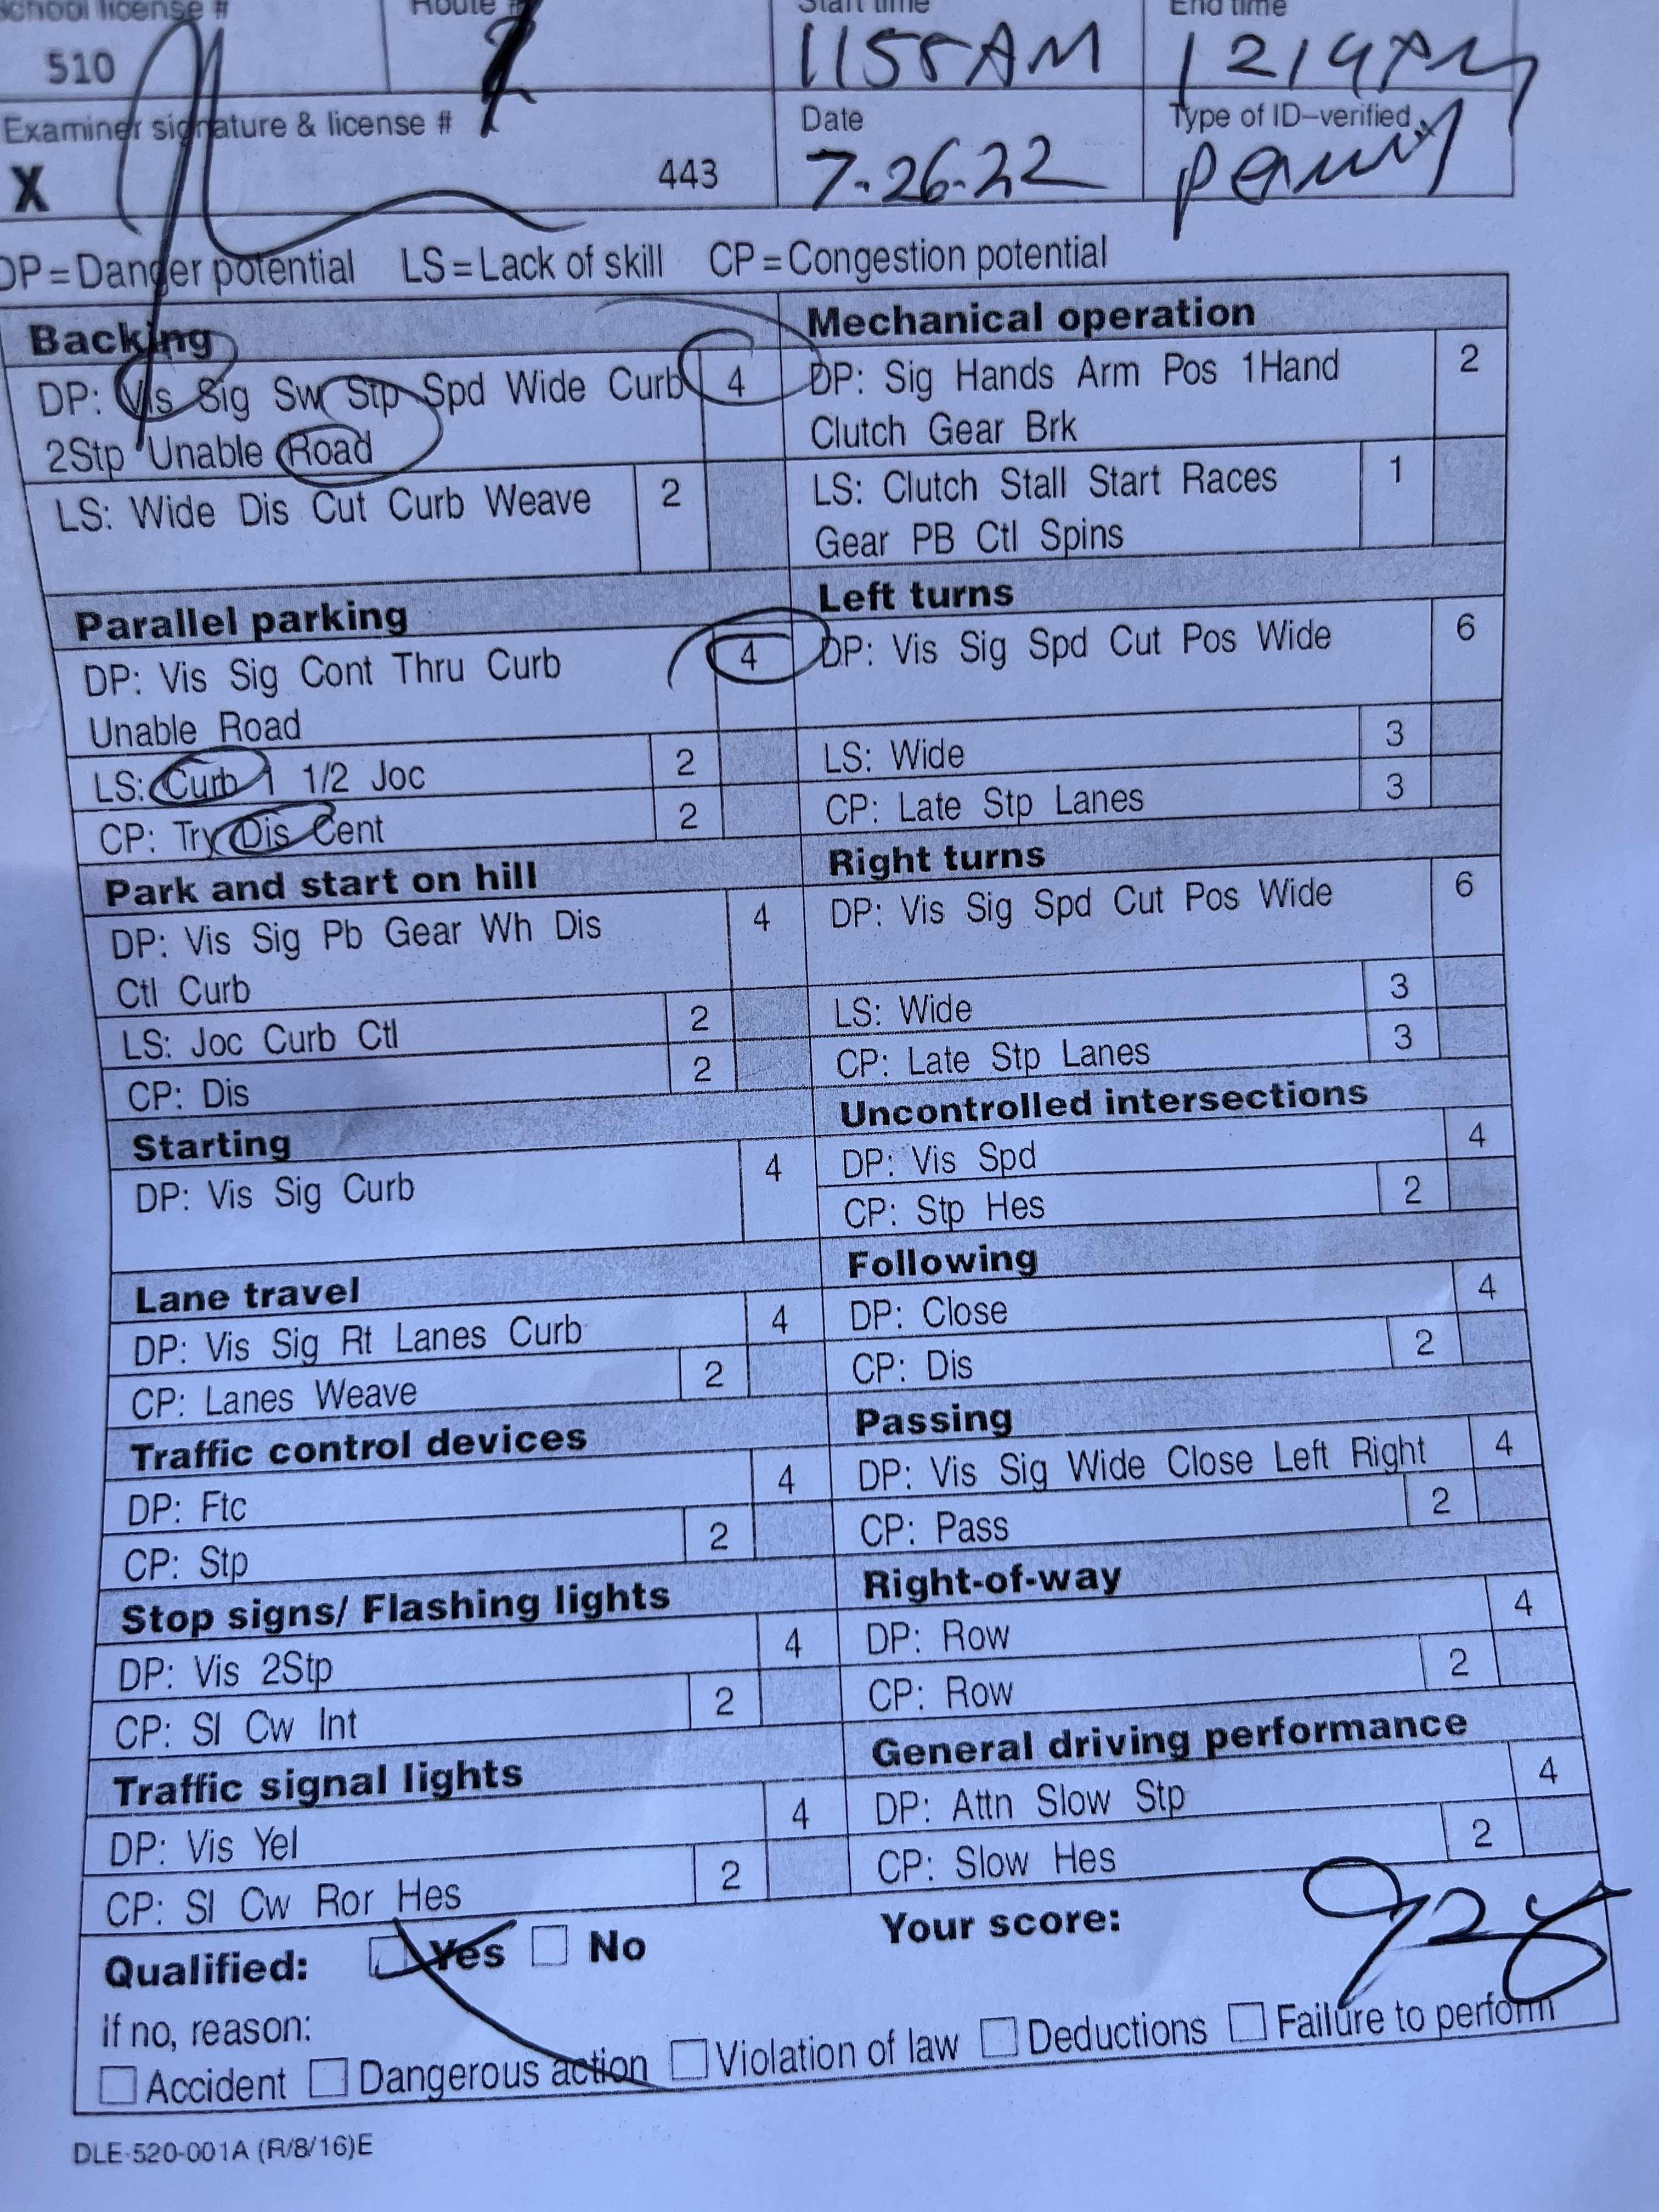 School license #
Route #
Start time
End time
510
2
1155AM
1219PM
Examiner signature & license #
Date
Type of ID–verified
X
443
7-26-22
permit
DP=Danger potential LS=Lack of skill CP=Congestion potential
Backing
DP: Vis Sig Sw Stp Spd Wide Curb
2Stp Unable Road
4
LS: Wide Dis Cut Curb Weave
2
Parallel parking
DP: Vis Sig Cont Thru Curb
Unable Road
4
LS: Curb 1 1/2 Joc
2
CP: Try Dis Cent
2
Park and start on hill
DP: Vis Sig Pb Gear Wh Dis
Ctl Curb
4
LS: Joc Curb Ctl
2
CP: Dis
2
Starting
DP: Vis Sig Curb
4
Lane travel
DP: Vis Sig Rt Lanes Curb
4
CP: Lanes Weave
2
Traffic control devices
DP: Ftc
4
CP: Stp
2
Stop signs/ Flashing lights
DP: Vis 2Stp
4
CP: Sl Cw Int
2
Traffic signal lights
DP: Vis Yel
4
CP: Sl Cw Ror Hes
2
Mechanical operation
DP: Sig Hands Arm Pos 1Hand
Clutch Gear Brk
2
LS: Clutch Stall Start Races
Gear PB Ctl Spins
1
Left turns
DP: Vis Sig Spd Cut Pos Wide
6
LS: Wide
3
CP: Late Stp Lanes
3
Right turns
DP: Vis Sig Spd Cut Pos Wide
6
LS: Wide
3
CP: Late Stp Lanes
3
Uncontrolled intersections
DP: Vis Spd
4
CP: Stp Hes
2
Following
DP: Close
4
CP: Dis
2
Passing
DP: Vis Sig Wide Close Left Right
4
CP: Pass
2
Right-of-way
DP: Row
4
CP: Row
2
General driving performance
DP: Attn Slow Stp
4
CP: Slow Hes
2
Qualified: Yes No
Your score:
If no, reason:
Accident Dangerous action Violation of law Deductions Failure to perform
DLE-520-001A (R/8/16)E